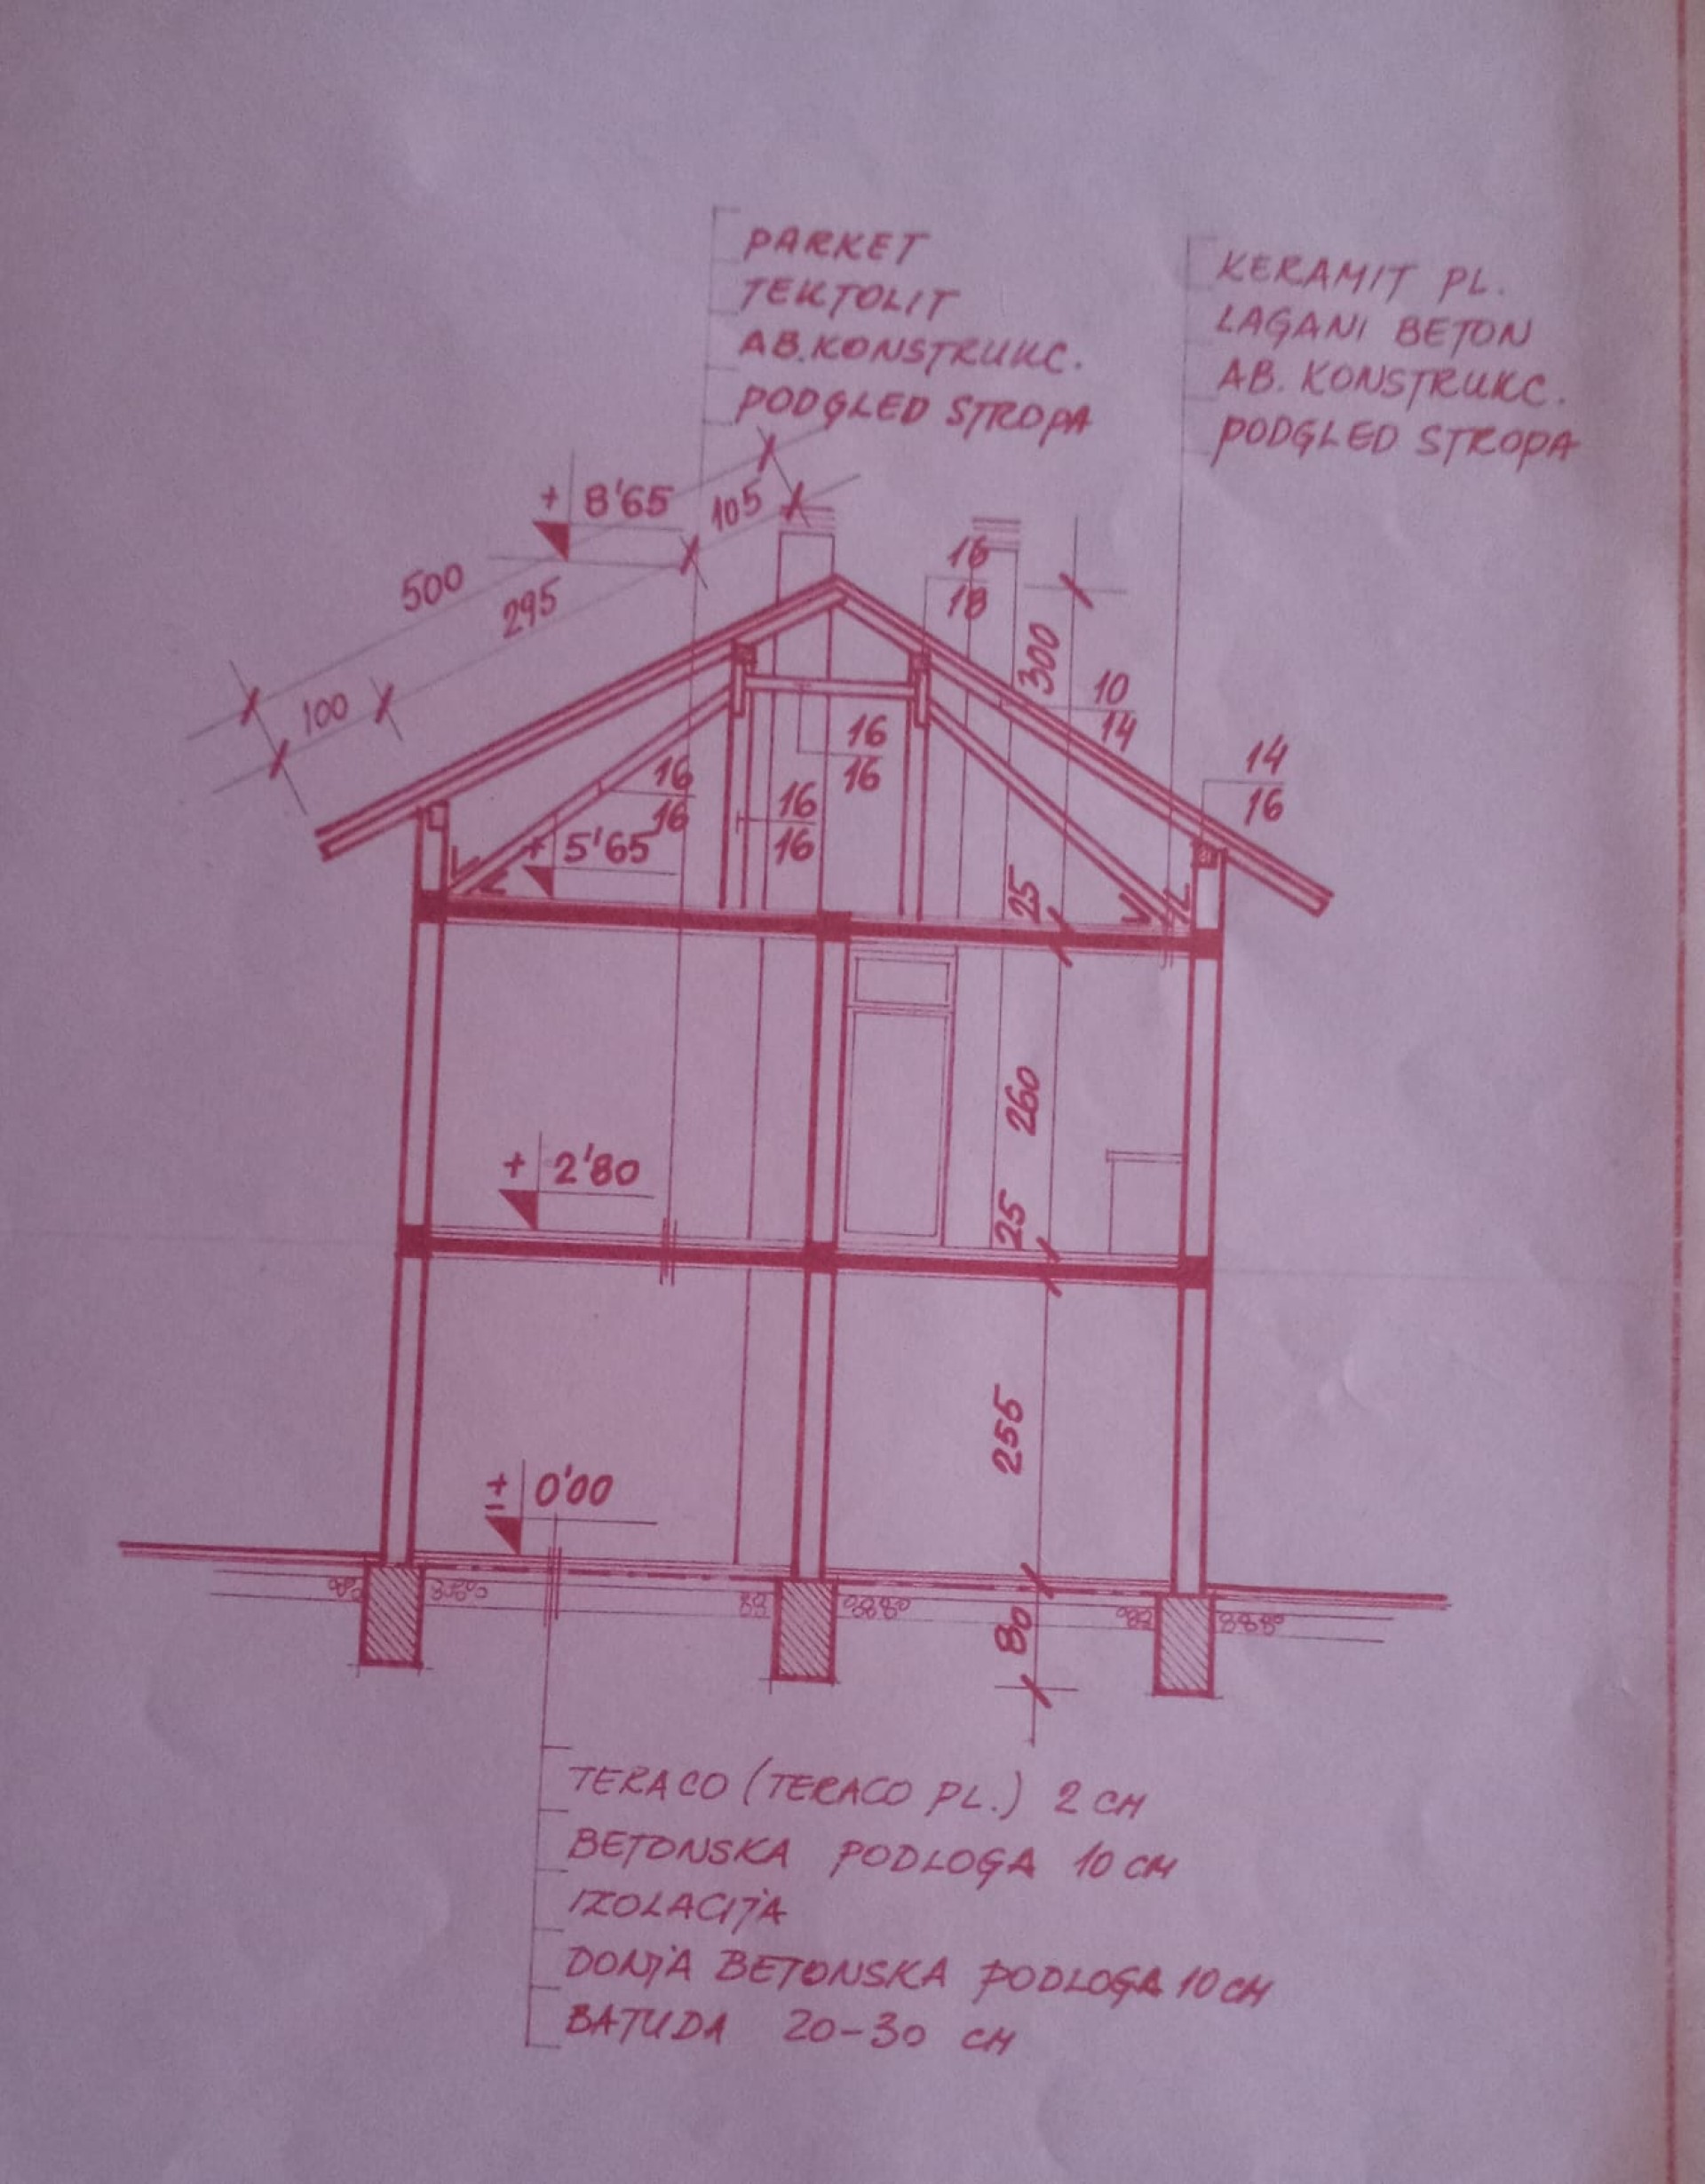 PARKET
TEKTOLIT
AB. KONSTRUKC.
PODGLED STROPA
KERAMIT PL.
LAGANI BETON
AB. KONSTRUKC.
PODGLED STROPA
+ 8'65
105
500
295
100
16
18
300
10
14
14
16
16
16
16
16
16
16
+ 5'65
25
260
+ 2'80
25
255
± 0'00
80
TERACO (TERACO PL.) 2 CM
BETONSKA PODLOGA 10 CM
IZOLACIJA
DONJA BETONSKA PODLOGA 10 CM
BATUDA 20-30 CM